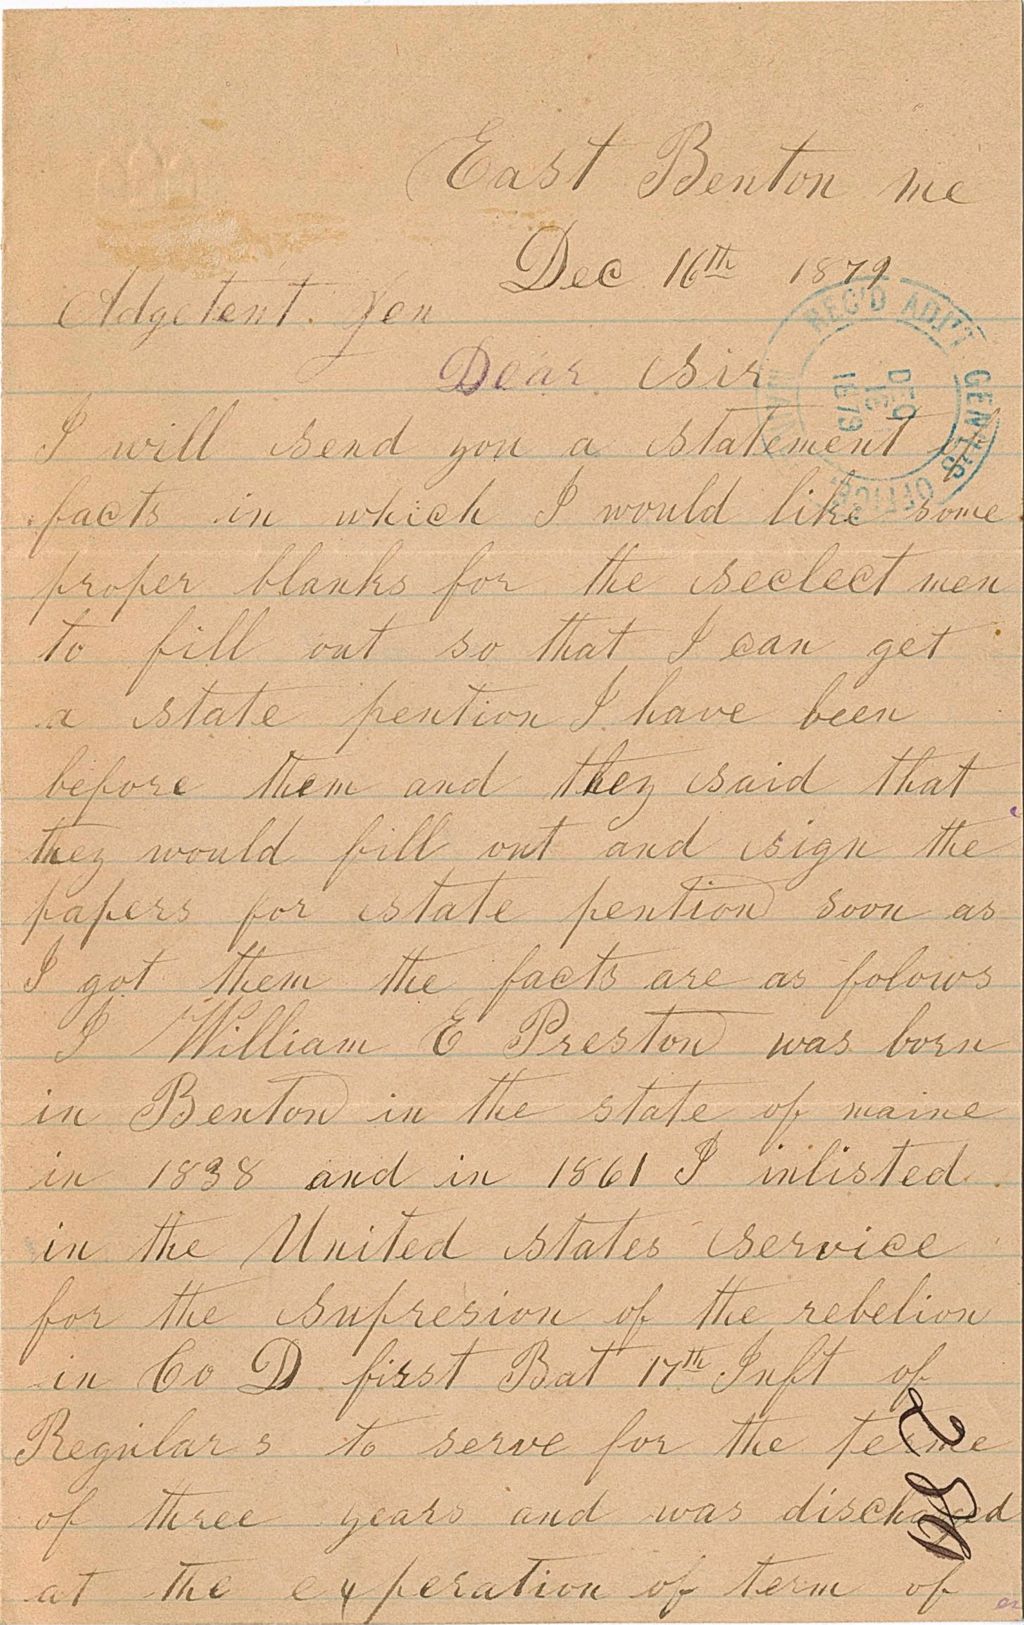 East Benton me
Dec 16th 1879
Adgetent. Gen
REC'D ADJ'T GEN'L'S OFFICE,
DEC
16
1879
Dear Sir
I will send you a statement of
facts in which I would like some
proper blanks for the seclect men
to fill out so that I can get
a state pention I have been
before them and they said that
they would fill out and sign the
papers for state pention soon as
I got them the facts are as folows
I William E Preston was born
in Benton in the state of maine
in 1838 and in 1861 I inlisted
in the United states service
for the supresion of the rebelion
in Co D first Bat 17th Inft of
Regulars to serve for the terme
of three years and was discharged
at the experation of term of